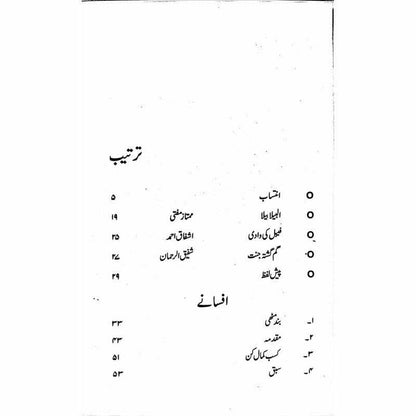 ترتیب
o انتساب ۵
o البیلا بیلا ممتاز مفتی ۱۹
o تخیل کی وادی اشفاق احمد ۲۵
o گم گشتہ جنت شفیق الرحمان ۲۷
o پیش لفظ ۲۹
افسانے
۱۔ بند مٹھی ۳۳
۲۔ مقدمہ ۴۳
۳۔ کسب کمال کن ۵۱
۴۔ سبق ۵۳